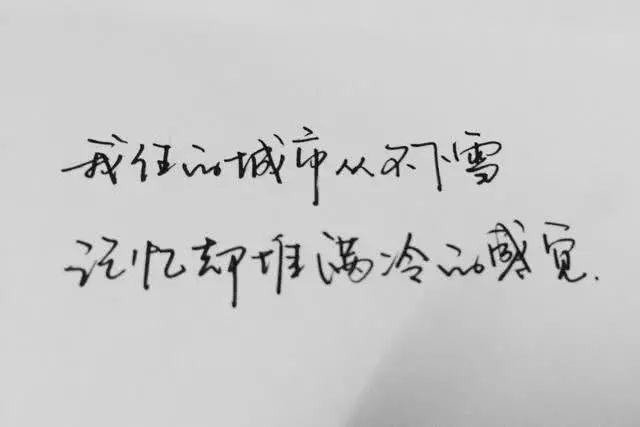 我住的城市从不下雪
记忆却堆满冷的感觉.